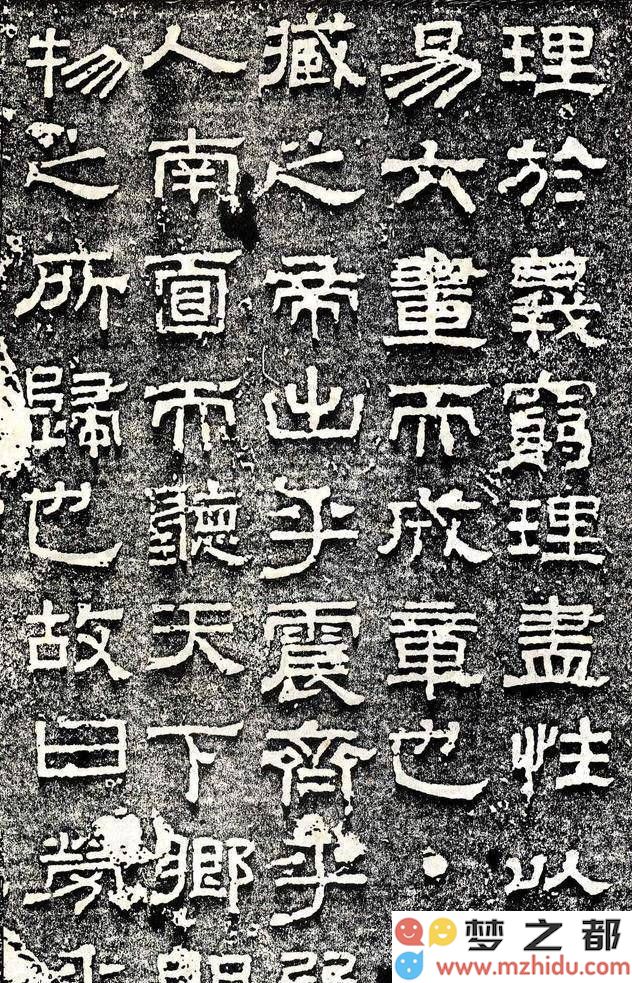 理於義窮理盡性以
易六畫而成章也·
臧之帝出乎震齊乎
人南面而聽天下鄉
物之所歸也故曰勞
梦之都
www.mzhidu.com